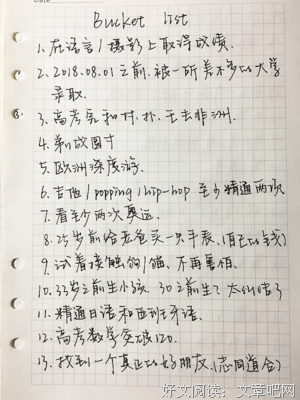 Bucket list
1. 在语言/摄影上取得成绩.
2. 2018.08.01之前.被一所差不多的大学
录取.
3. 高考完和付.朴.王去非洲.
4. 剃成圆寸
5. 欧洲深度游.
6. 吉他/popping/hip-hop 至少精通两项
7. 看至少两次奥运.
8. 25岁前给老爸买一只手表.(自己的钱)
9. 试着接触狗/猫.不再害怕.
10. 33岁之前生小孩. 30之前生?
11. 精通日语和西班牙语.
12. 高考数学突破120.
13. 找到一个真正的好朋友.(志同道合)
好文阅读:文章吧网